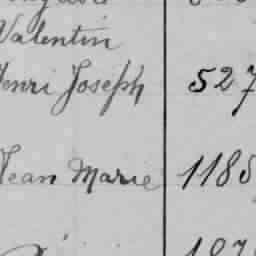 Valentin
Henri Joseph 527
Jean Marie 1185
187